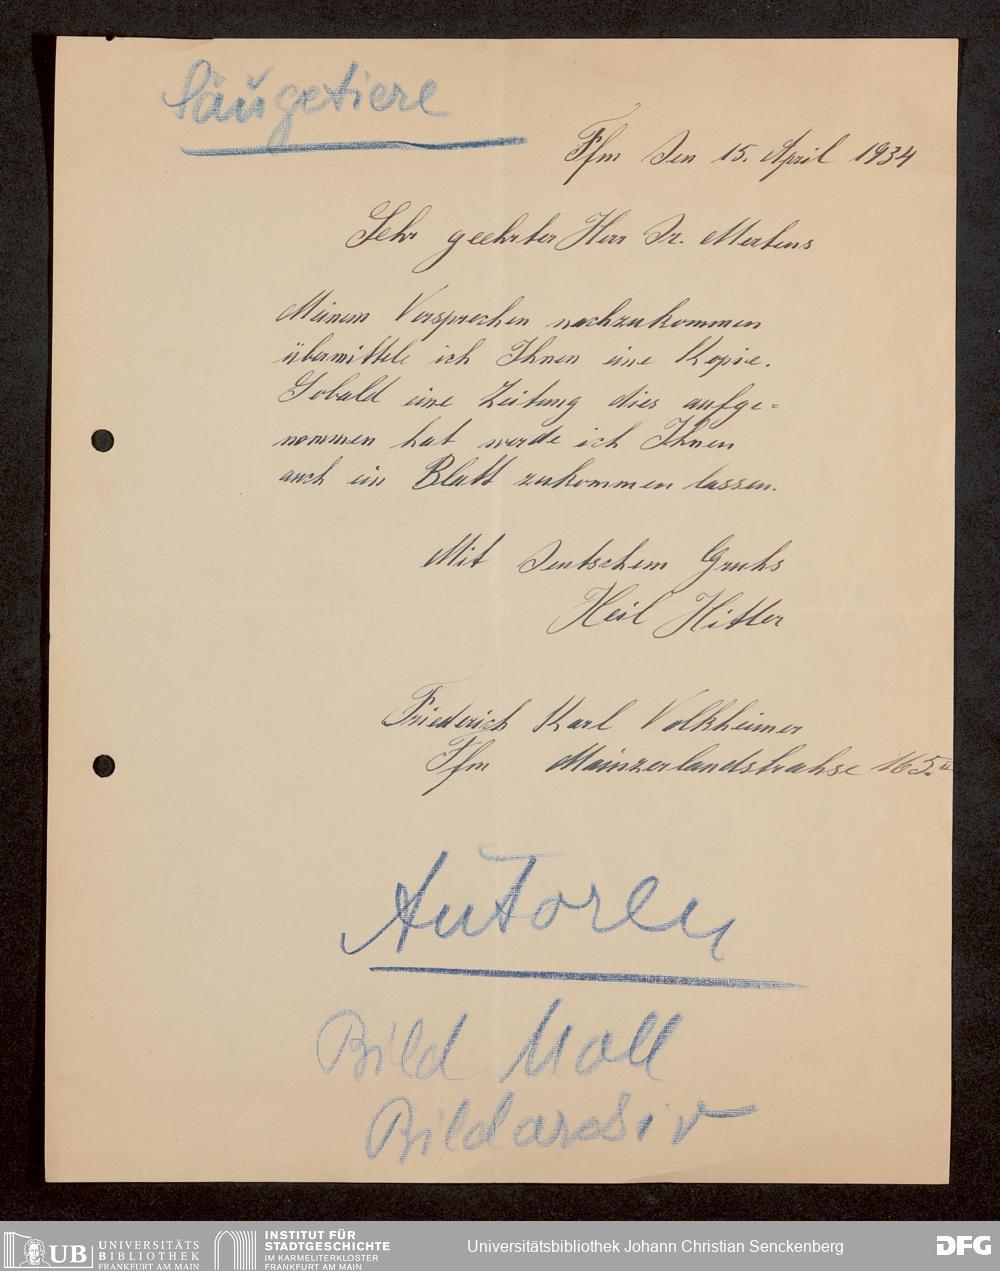 Säugetiere
Ffm den 15. April 1934
Sehr geehrter Herr Dr. Mertens
Meinem Versprechen nachzukommen
übermittele ich Ihnen eine Kopie.
Sobald eine Zeitung dies aufge=
nommen hat werde ich Ihnen
auch ein Blatt zukommen lassen.
Mit deutschem Gruhs
Heil Hitler
Friederich Karl Volkheimer
Ffm Mainzerlandstrahse 165 II
Autoren
Bild
Bildarchiv
UB UNIVERSITÄTS
BIBLIOTHEK
FRANKFURT AM MAIN
INSTITUT FÜR
STADTGESCHICHTE
IM KARMELITERKLOSTER
FRANKFURT AM MAIN
Universitätsbibliothek Johann Christian Senckenberg
DFG